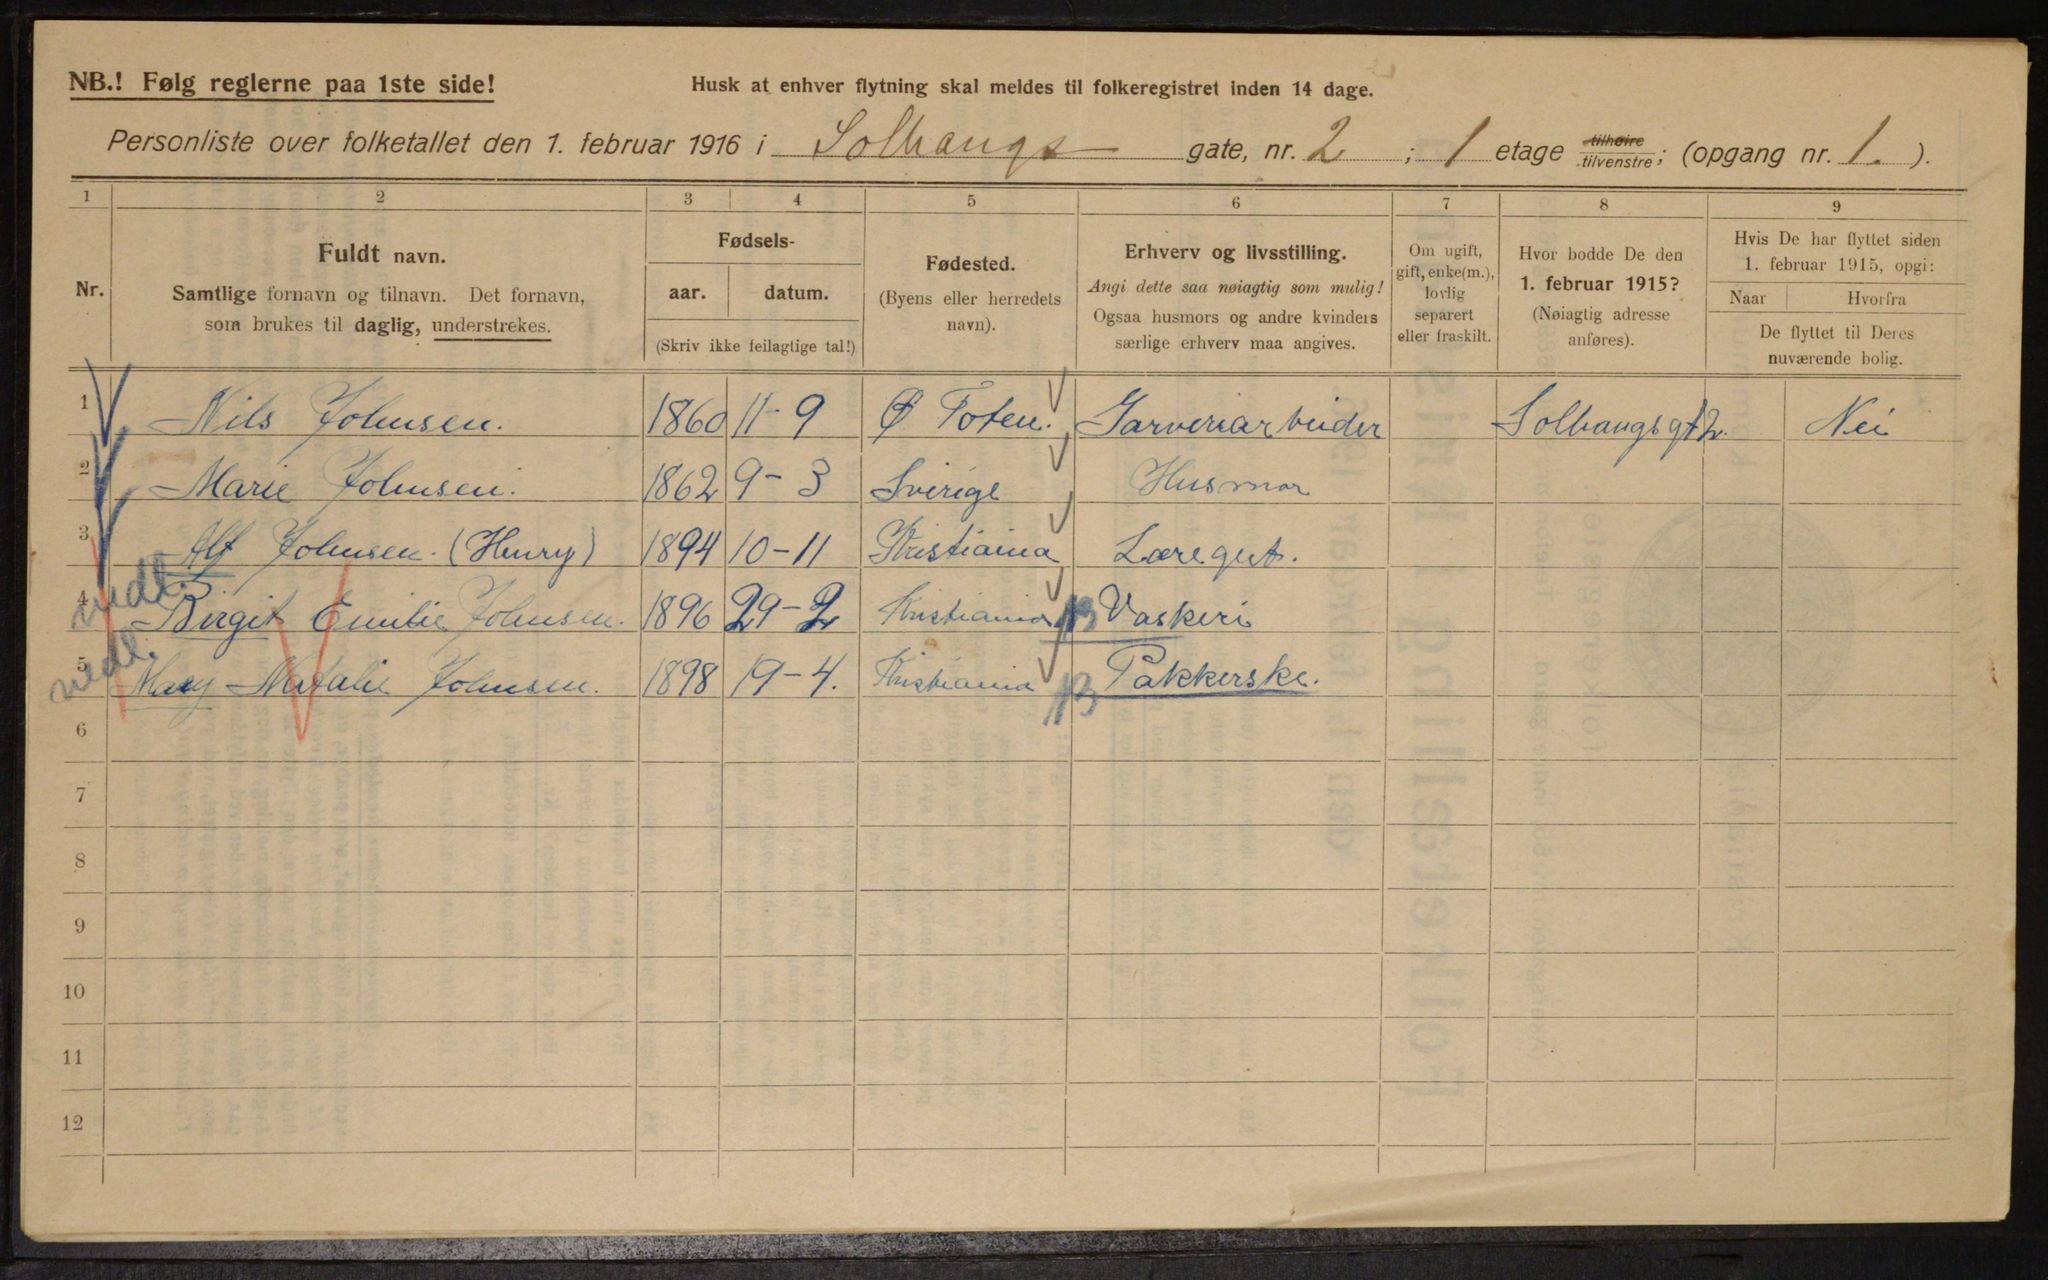 NB.! Følg reglerne paa 1ste side!
Husk at enhver flytning skal meldes til folkeregistret inden 14 dage.
Personliste over folketallet den 1. februar 1916 i Solhaugs gate, nr. 2 ; 1 etage tilhøire tilvenstre; (opgang nr. 1. ).
1 2 3 4 5 6 7 8 9
Nr.
Fuldt navn.
Samtlige fornavn og tilnavn. Det fornavn,
som brukes til daglig, understrekes.
Fødsels-
aar. datum.
(Skriv ikke feilagtige tal!)
Fødested.
(Byens eller herredets
navn).
Erhverv og livsstilling.
Angi dette saa nøiagtig som mulig!
Ogsaa husmors og andre kvinders
særlige erhverv maa angives.
Om ugift,
gift, enke(m.),
lovlig
separert
eller fraskilt.
Hvor bodde De den
1. februar 1915?
(Nøiagtig adresse
anføres).
Hvis De har flyttet siden
1. februar 1915, opgi:
Naar Hvorfra
De flyttet til Deres
nuværende bolig.
1 Nils Johnsen. 1860 11-9 Ø Toten. Garveriarbeider Solhaugsgt 2. Nei
2 Marie Johnsen. 1862 9-3 Sverige Husmor
3 Alf Johnsen. (Henry) 1894 10-11 Kristiania Læregut.
4 Birgit Emilie Johnsen. 1896 29-2 Kristiania Vaskeri
5 Mary Natalie Johnsen. 1898 19-4. Kristiania Pakkerske.
6
7
8
9
10
11
12